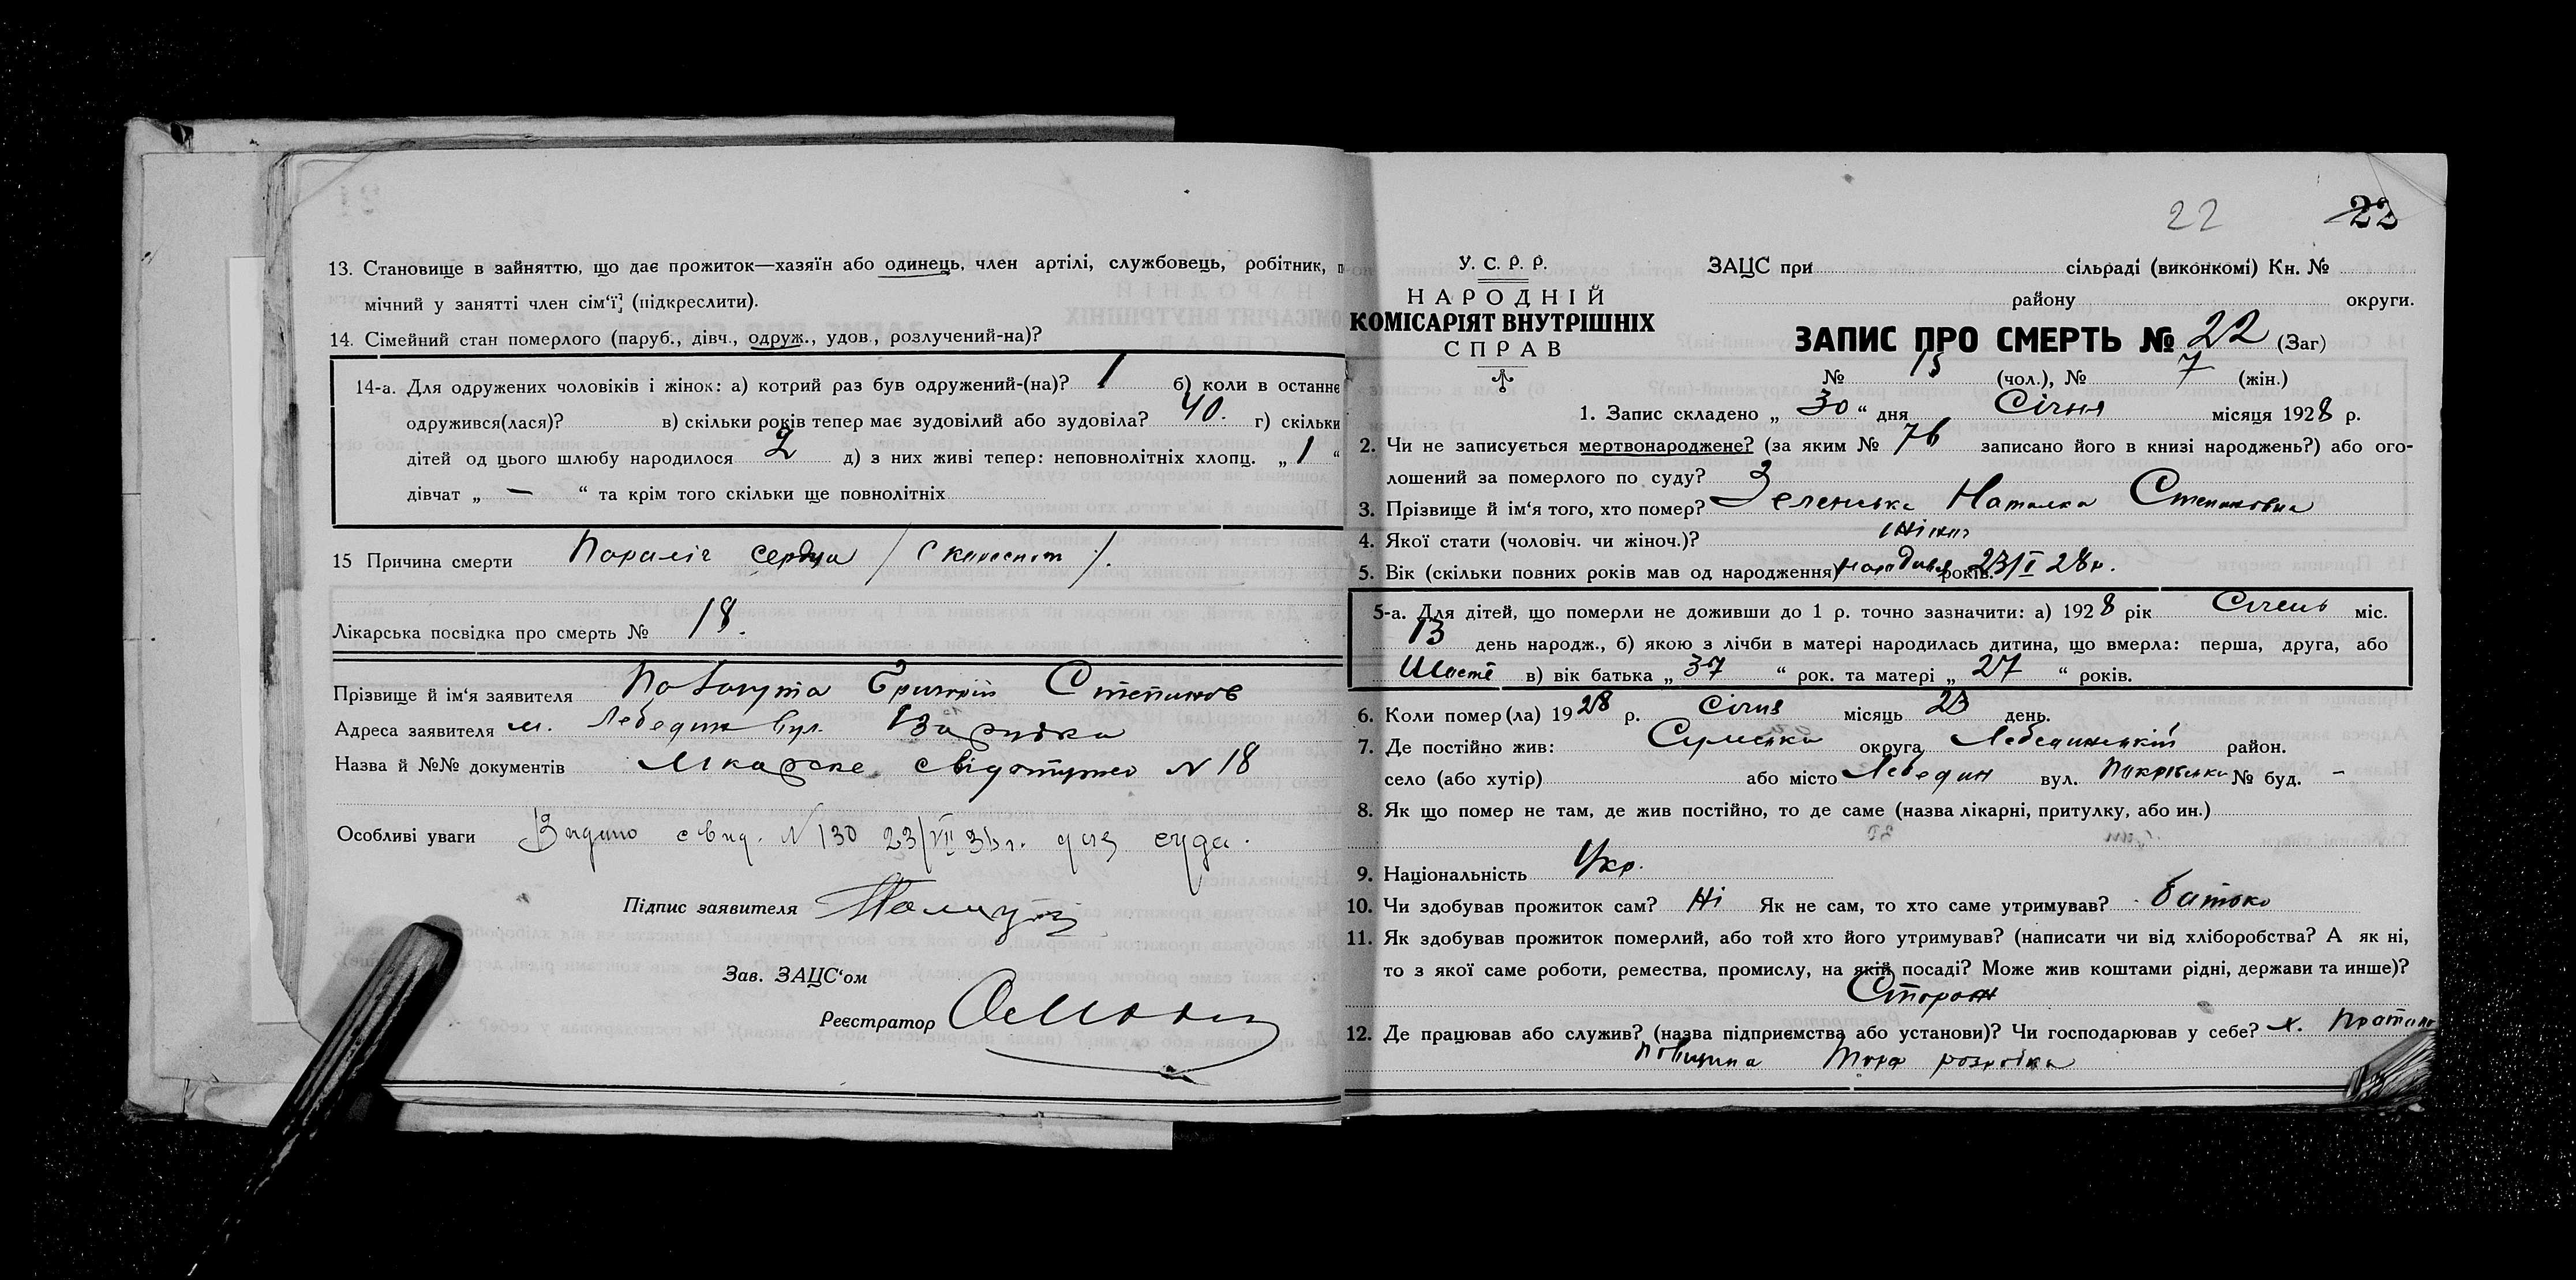 13. Становище в зайняттю, що дає прожиток—хазяїн або одинець, член артілі, службовець, робітник, п
мічний у занятті член сім'ї, (підкреслити).
14. Сімейний стан померлого (паруб., дівч., одруж., удов., розлучений-на)?
14-а. Для одружених чоловіків і жінок: а) котрий раз був одружений-(на)? 1 б) коли в останнє
одружився(лася)? в) скільки років тепер має зудовілий або зудовіла? 40. г) скільки
дітей од цього шлюбу народилося 2 д) з них живі тепер: неповнолітніх хлопц. „ 1 “
дівчат „ — “ та крім того скільки ще повнолітніх
15 Причина смерти Параліч серця
Лікарська посвідка про смерть № 18.
Прізвище й ім'я заявителя Григорій Степанов
Адреса заявителя м. Лебедин вул.
Назва й №№ документів Лікарске свідотство N 18
Особливі уваги Видано свид. N 130 23/VII 31 г. для суда.
Підпис заявителя
Зав. ЗАЦС'ом
Реєстратор
22
22
У. С. Р. Р.
НАРОДНІЙ
КОМІСАРІЯТ ВНУТРІШНІХ
СПРАВ
ЗАЦС при сільраді (виконкомі) Кн. №
району округи.
ЗАПИС ПРО СМЕРТЬ № 22 (Заг)
№ 15 (чол.), № 7 (жін.)
1. Запис складено „ 30 “ дня Січня місяця 1928 р.
2. Чи не записується мертвонароджене? (за яким № 76 записано його в книзі народжень?) або ого-
лошений за померлого по суду?
3. Прізвище й ім'я того, хто помер? Зеленська Наталка Степановна
4. Якої стати (чоловіч. чи жіноч.)? жіноч
5. Вік (скільки повних років мав од народження) років. 23/I 28 р.
5-а. Для дітей, що померли не доживши до 1 р. точно зазначити: а) 1928 рік Січень міс.
13 день народж., б) якою з лічби в матері народилась дитина, що вмерла: перша, друга, або
Шосте в) вік батька „ 37 “ рок. та матері „ 27 “ років.
6. Коли помер(ла) 1928 р. Січня місяць 23 день.
7. Де постійно жив: Сумська округа Лебединський район.
село (або хутір) або місто Лебедин вул. Покрівська № буд. –
8. Як що помер не там, де жив постійно, то де саме (назва лікарні, притулку, або ин.)
9. Національність Укр.
10. Чи здобував прожиток сам? Ні Як не сам, то хто саме утримував? батько
11. Як здобував прожиток померлий, або той хто його утримував? (написати чи від хліборобства? А як ні,
то з якої саме роботи, ремества, промислу, на якій посаді? Може жив коштами рідні, держави та инше)?
Сторож
12. Де працював або служив? (назва підприємства або установи)? Чи господарював у себе? х.